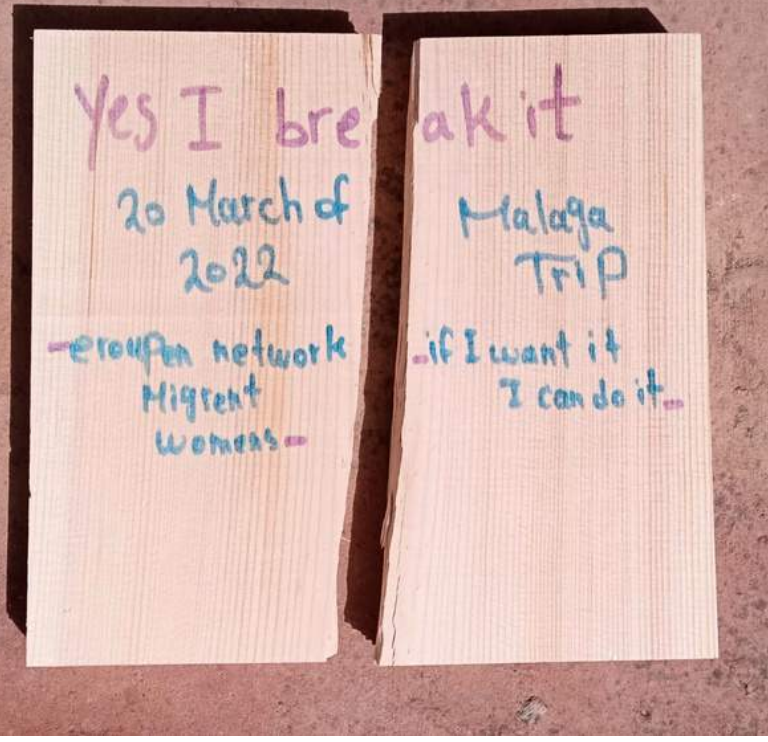 Yes I break it
20 March of
2022
-eroupen network
Migrent
womens-
Malaga
Trip
-if I want it
I can do it-